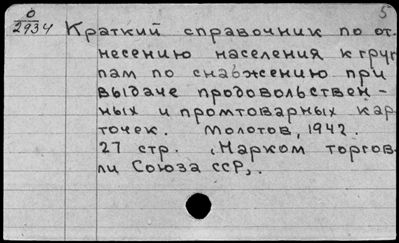 0 5
2934
Краткий справочник по от
несению населения к груп
пам по снабжению при
выдаче продовольствен-
ных и промтоварных кар
точек. Молотов, 1942.
27 стр. (Нарком торгов
ли Союза ССР).